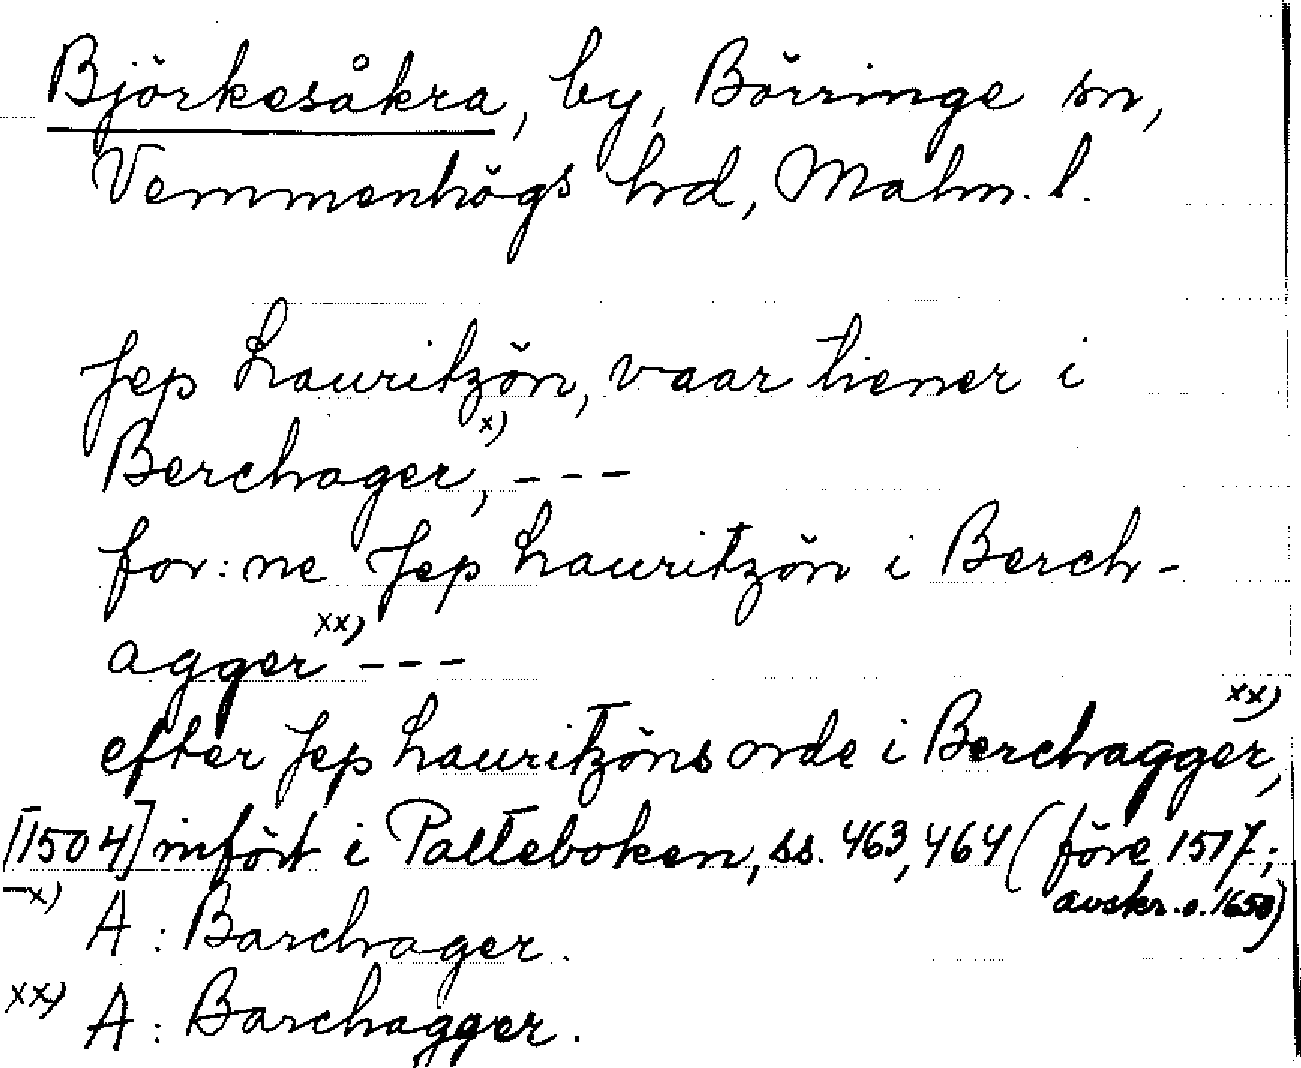 Björkesåkra, by, Börringe sn,
Vemmenhögs hrd, Malm. l.
Jep Lauritzön, vaar tiener i
Berchager,x) ---
for:ne Jep Lauritzön i Berch-
aggerxx) ---
efter Jep Lauritzöns orde i Berchagger,xx)
[1504] infört i Palteboken, ss. 463, 464 (före 1517;
avskr. o. 1650)
x) A: Barchager.
xx) A: Barchagger.